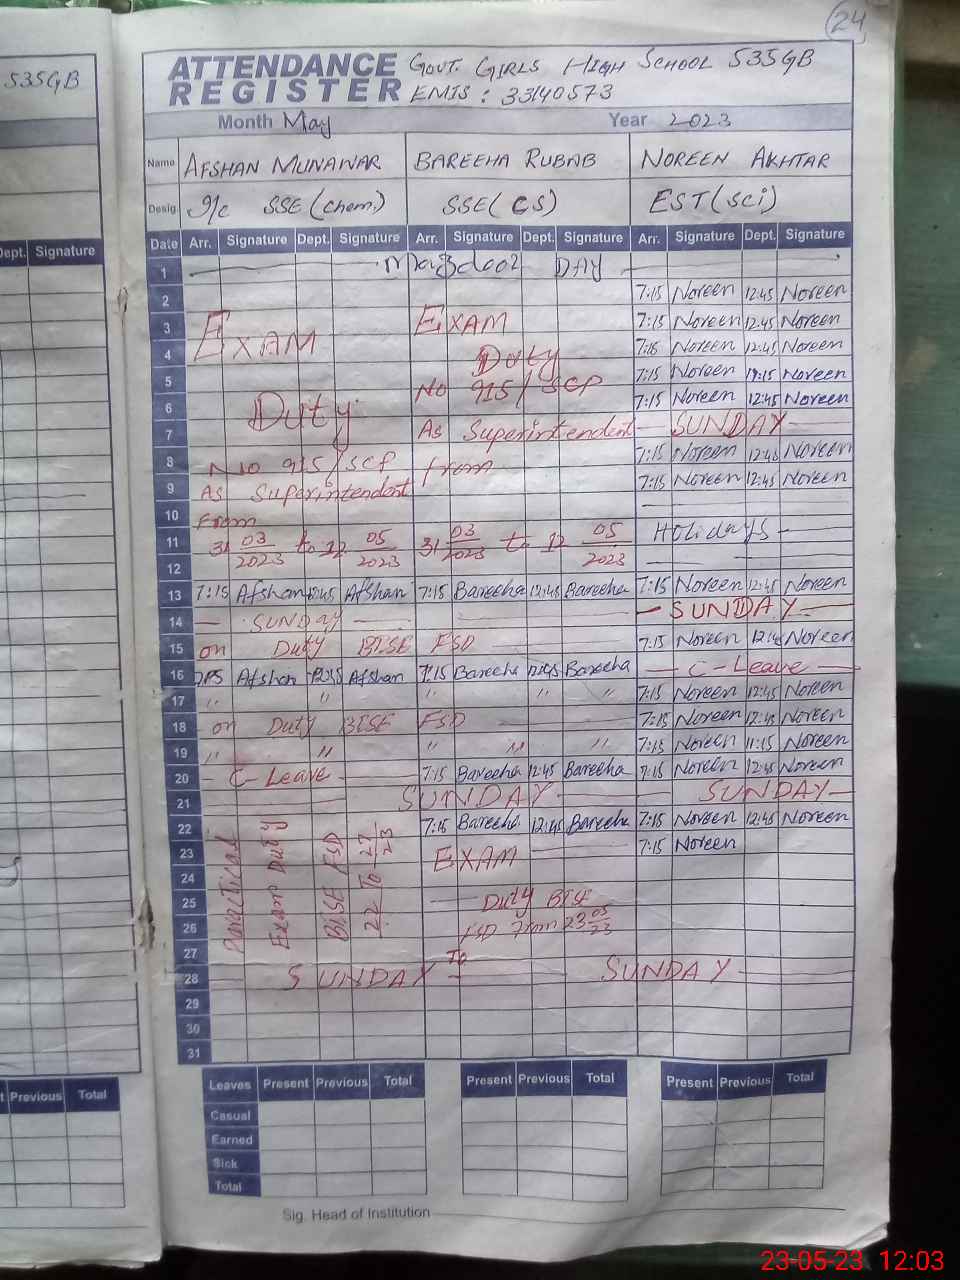 24
535GB
ATTENDANCE REGISTER
GOVT. GIRLS HIGH SCHOOL 535GB
EMIS : 33140573
Month May Year 2023
Name AFSHAN MUNAWAR BAREEHA RUBAB NOREEN AKHTAR
Desig. I/C SSE (Chem.) SSE( CS) EST(SCI)
Dept. Signature
Date Arr. Signature Dept. Signature Arr. Signature Dept. Signature Arr. Signature Dept. Signature
1 Mazdoor DAY
2 7:15 Noreen 12:45 Noreen
3 EXAM EXAM 7:15 Noreen 12:45 Noreen
4 Duty 7:15 Noreen 12:45 Noreen
5 No 915/SCP 7:15 Noreen Noreen
6 Duty 7:15 Noreen 12:45 Noreen
7 As Superintendent SUNDAY
8 No 915/SCP from 7:15 Noreen 12:45 Noreen
9 As Superintendent 7:15 Noreen 12:45 Noreen
10 From
11 31 03/2023 to 12 05/2023 31 03/2023 to 12 05/2023 Holidays
12
13 7:15 Afshan 12:45 Afshan 7:15 Bareeha 12:45 Bareeha 7:15 Noreen 12:45 Noreen
14 SUNDAY SUNDAY
15 on Duty BISE FSD 7:15 Noreen 12:45 Noreen
16 7:15 Afshan Afshan 7:15 Bareeha 12:45 Bareeha C-Leave
17 " " " " " 7:15 Noreen 12:45 Noreen
18 on Duty BISE FSD 7:15 Noreen 12:45 Noreen
19 " " " " " 7:15 Noreen 11:15 Noreen
20 C-Leave 7:15 Bareeha 12:45 Bareeha 7:15 Noreen 12:45 Noreen
21 SUNDAY SUNDAY
22 7:15 Bareeha 12:45 Bareeha 7:15 Noreen 12:45 Noreen
23 EXAM 7:15 Noreen
24
25 Duty BISE
26 FSD From 23 05/23
27 To
Practical
Exam Duty
BISE FSD
22 To 27/23
28 SUNDAY SUNDAY
29
30
31
Previous Total
Leaves Present Previous Total Present Previous Total Present Previous Total
Casual
Earned
Sick
Total
Sig. Head of Institution
23-05-23 12:03